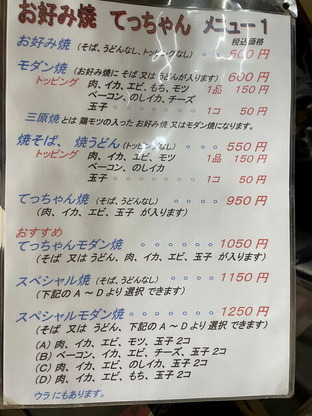 お好み焼 てっちゃん メニュー1
税込価格
お好み焼 (そば、うどんなし、トッピングなし) 。。500円
モダン焼 (お好み焼に そば 又は うどんが入ります) 600円
トッピング 肉、イカ、エビ、もち、モツ 1品 150円
ベーコン、のしイカ、チーズ
玉子 。。。。。。。1コ 50円
三原焼 とは 鶏モツの入った お好み焼 又はモダン焼になります。
焼そば、焼うどん (トッピングなし) 。。。550円
トッピング 肉、イカ、エビ、モツ 1品 150円
ベーコン、のしイカ
玉子 。。。。。。。1コ 50円
てっちゃん焼 (そば、うどんなし) 。。。。950円
(肉、イカ、エビ、玉子 が入ります)
おすすめ
てっちゃんモダン焼 。。。。。。1050円
(そば 又は うどん、肉、イカ、エビ、玉子 が入ります)
スペシャル焼 (そば、うどんなし) 。。。1150円
(下記のA～Dより選択 できます)
スペシャルモダン焼 。。。。。。1250円
(そば 又は うどん、下記のA～Dより選択 できます)
(A) 肉、イカ、エビ、モツ、玉子2コ
(B) ベーコン、イカ、エビ、チーズ、玉子2コ
(C) 肉、イカ、エビ、のしイカ、玉子2コ
(D) 肉、イカ、エビ、もち、玉子2コ
ウラにもあります。